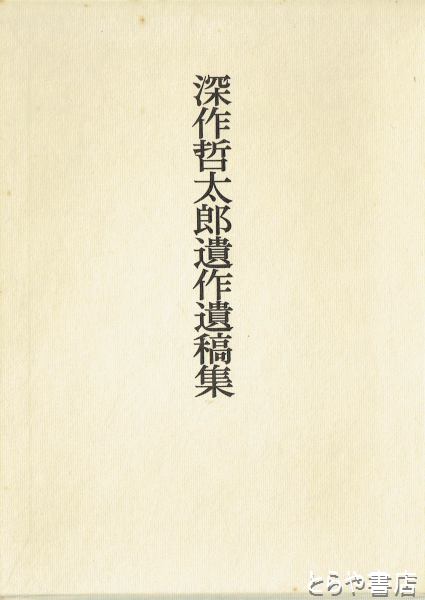 深作哲太郎遺作遺稿集
とらや書店